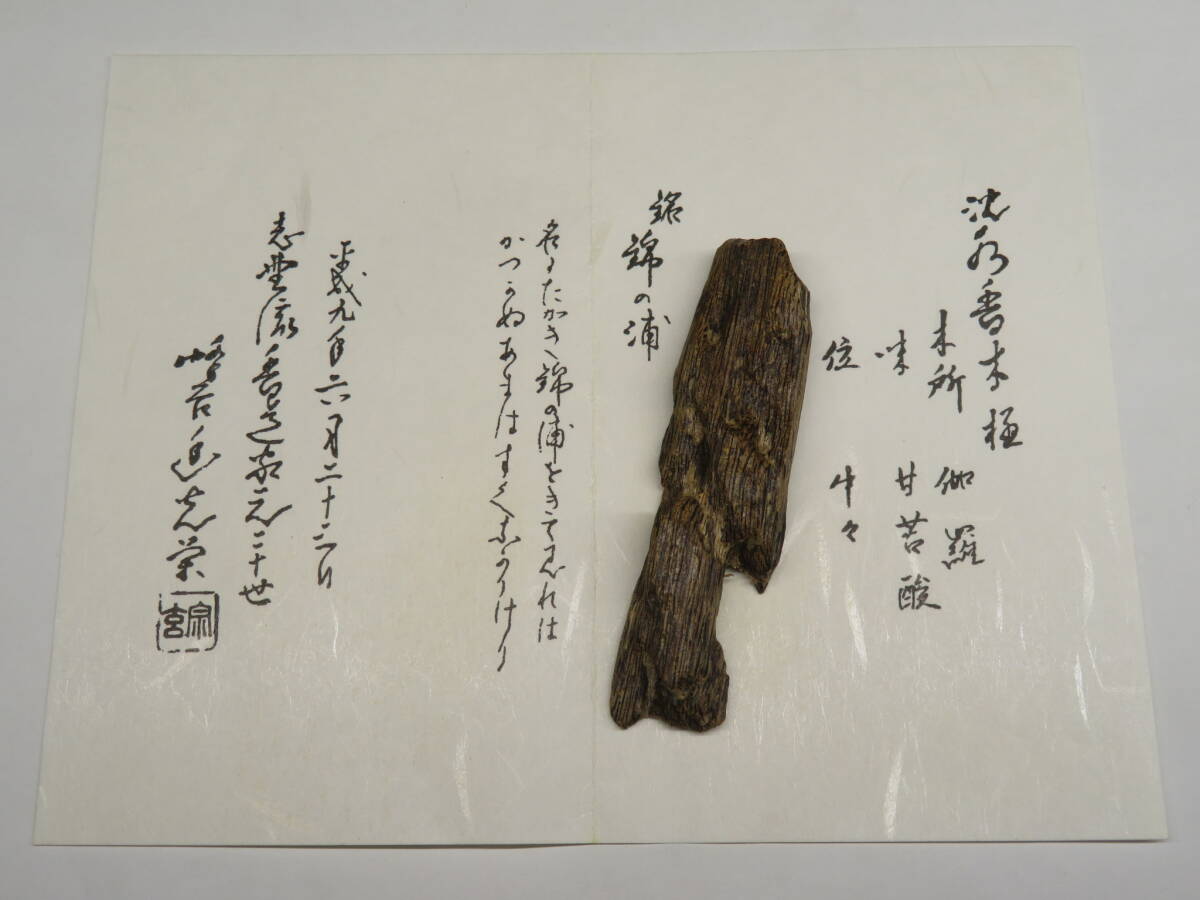 沈水香木極
木所 伽羅
味 甘苦酸
位 中々
銘 錦の浦
名にたかき錦の浦をきてみれは
かつかぬあまはすくなかりけり
平成九年六月二十
志野流香道家元二十世
蜂谷幽光斎
宗玄